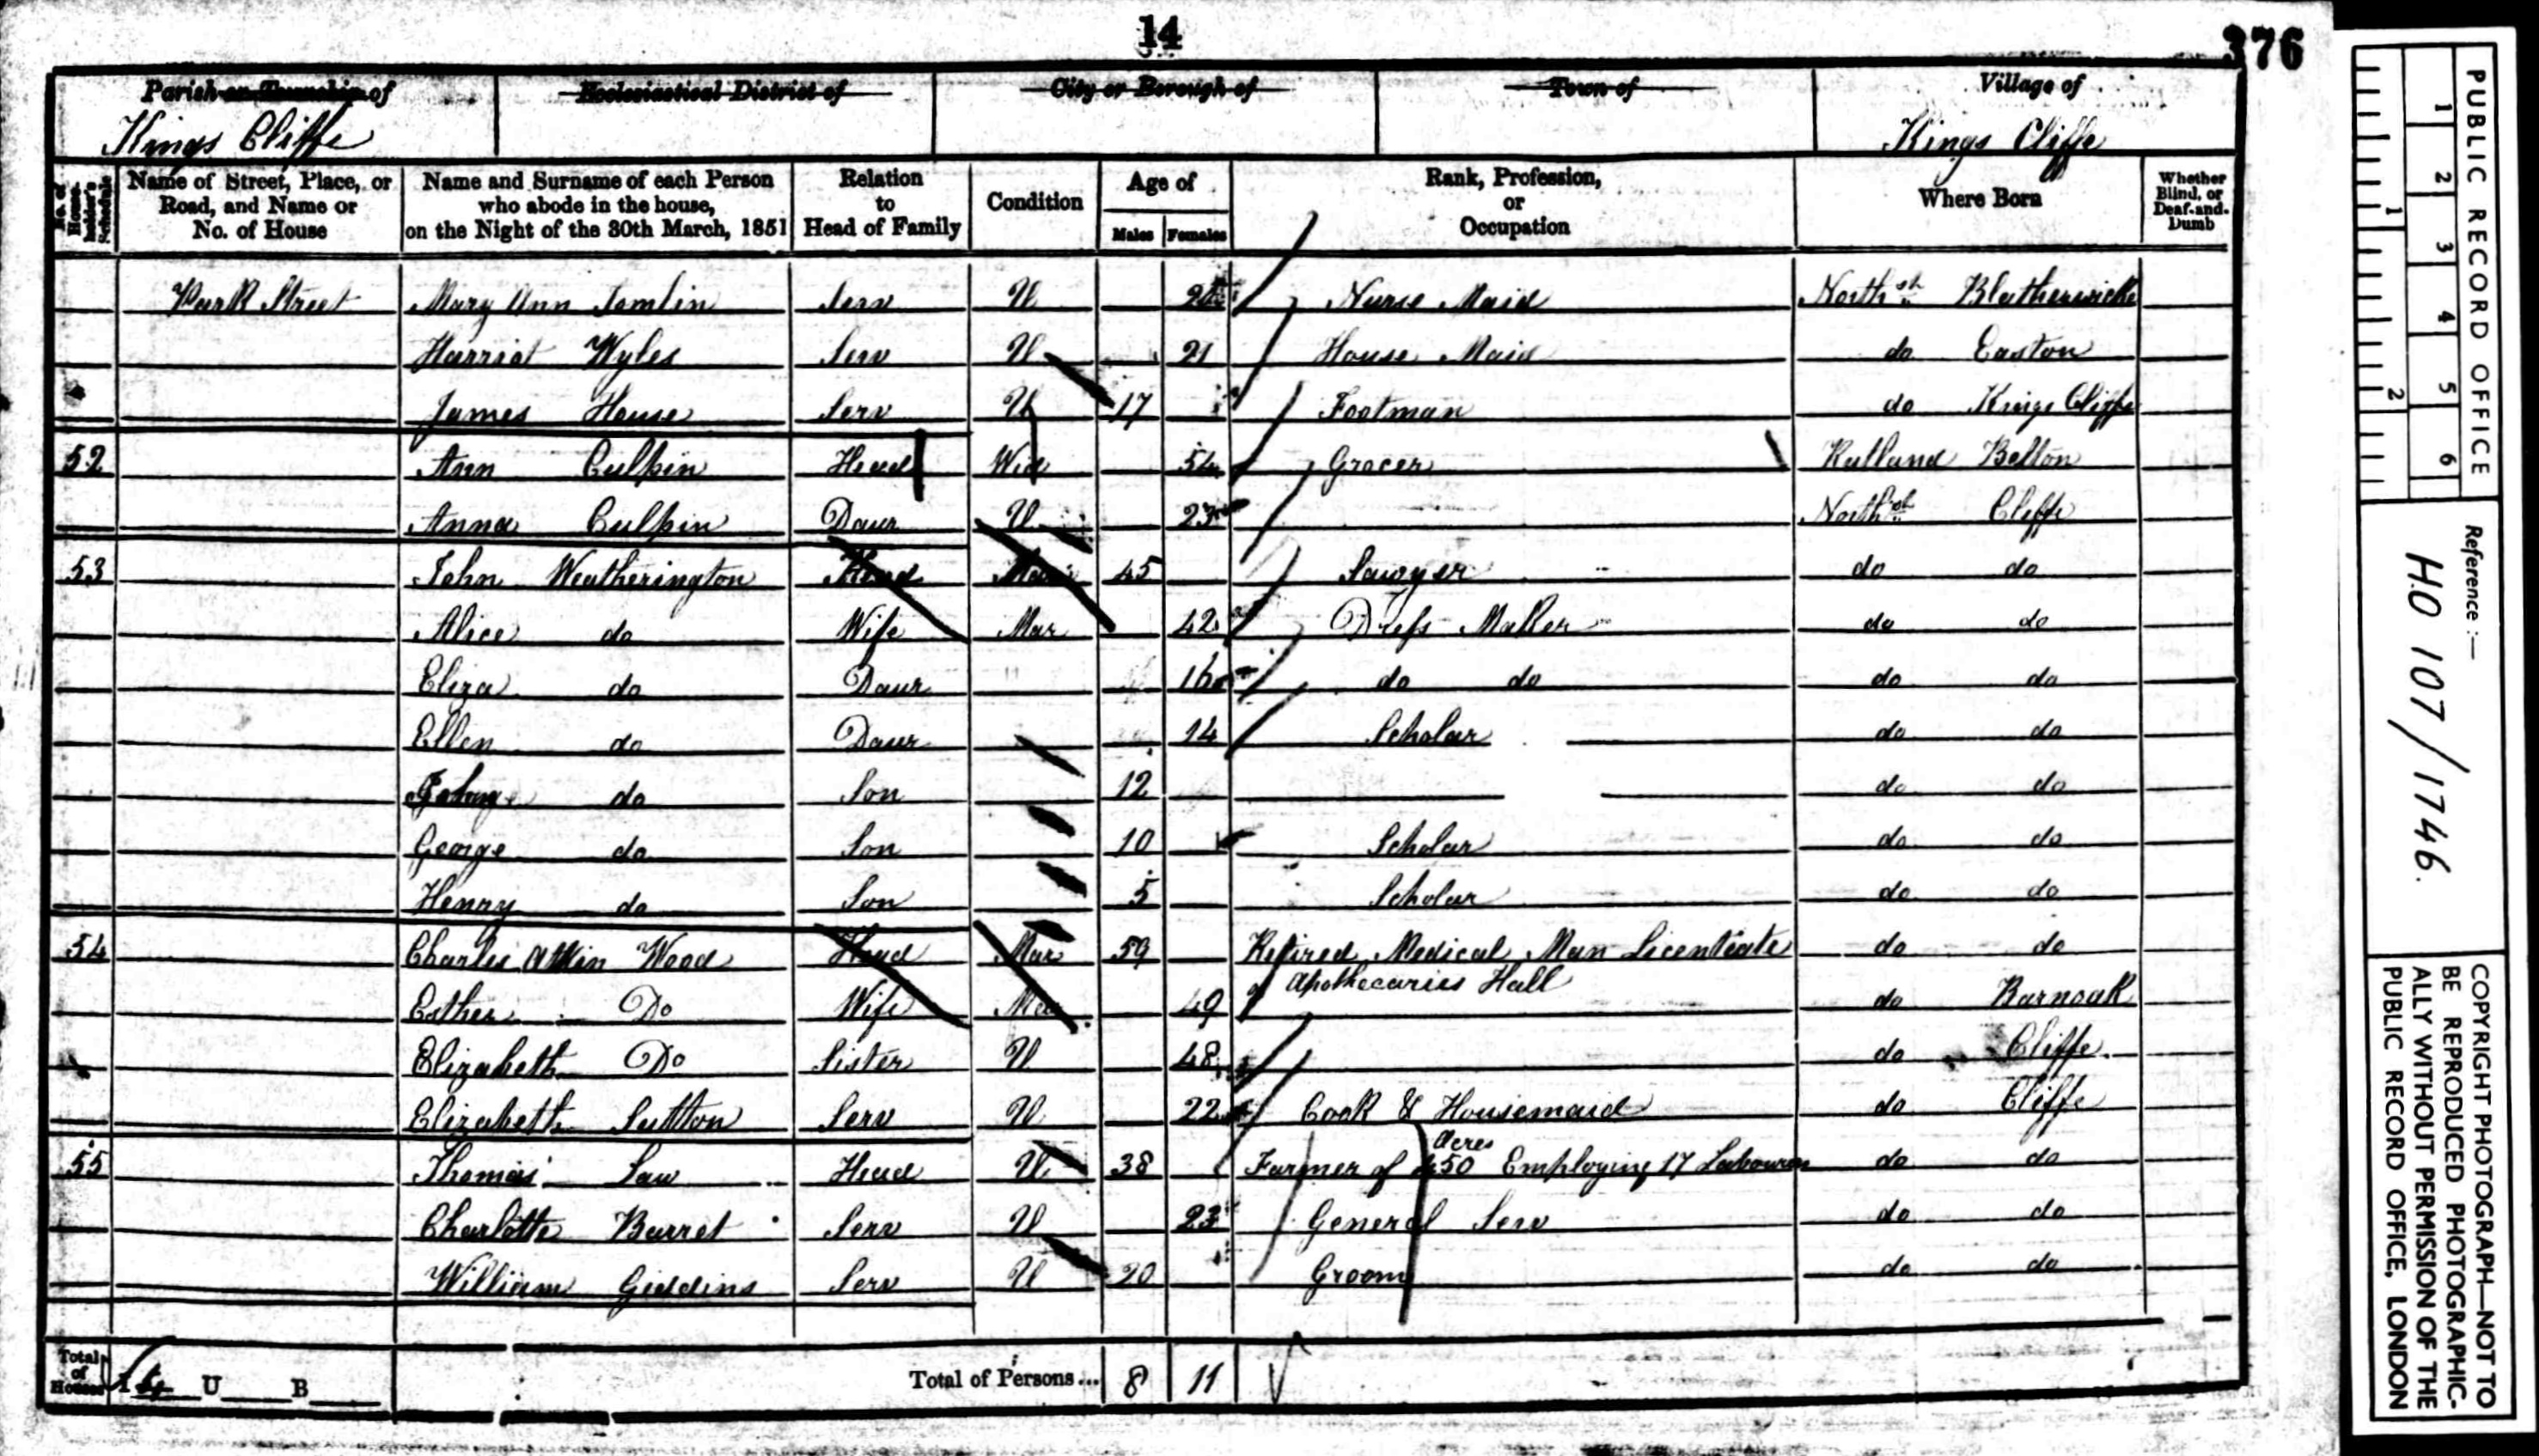 14
376
Parish or Township of
Kings Cliffe
Ecclesiastical District of
City or Borough of
Town of
Village of
Kings Cliffe
No. of House-holder's Schedule
Name of Street, Place, or Road, and Name or No. of House
Name and Surname of each Person who abode in the house, on the Night of the 30th March, 1851
Relation to Head of Family
Condition
Age of
Males Females
Rank, Profession, or Occupation
Where Born
Whether Blind, or Deaf-and-Dumb
Park Street Mary Ann Tomlin Serv U Nurse Maid North.sh Blatherwicke
Harriot Wyles Serv U 21 House Maid do Easton
James House Serv U 17 Footman do Kings Cliffe
52 Ann Culpin Head Wid 54 Grocer Rutland Belton
Anna Culpin Daur U 23 North.sh Cliffe
53 John Weatherington Head Mar 45 Sawyer do do
Alice do Wife Mar 42 Dress Maker do do
Eliza do Daur 16 do do do do
Ellen do Daur 14 Scholar do do
do Son 12 do do
George do Son 10 Scholar do do
Henry do Son 5 Scholar do do
54 Charles Atkin Wood Head Mar 59 Retired Medical Man Licentiate do do
of Apothecaries Hall
Esther Do Wife Mar 49 do Barnoak
Elizabeth Do Sister U 48 do Cliffe
Elizabeth Sutton Serv U 22 Cook & Housemaid do Cliffe
55 Thomas Law Head U 38 Farmer of 450 Acres Employing 17 Labourers do do
Charlotte Barret Serv U 23 General Serv do do
William Giddins Serv U 20 Groom do do
Total of Houses I 4 U B
Total of Persons... 8 11
PUBLIC RECORD OFFICE
1 2 3 4 5 6
1 2
Reference :—
HO 107/1746.
COPYRIGHT PHOTOGRAPH—NOT TO
BE REPRODUCED PHOTOGRAPHIC-
ALLY WITHOUT PERMISSION OF THE
PUBLIC RECORD OFFICE, LONDON